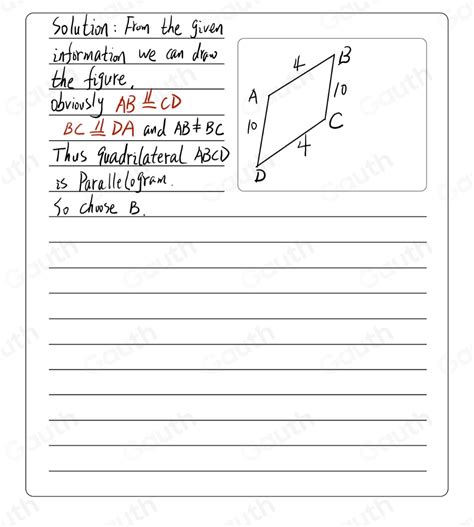 Solution: From the given
information we can draw
the figure.
obviously AB ⫫ CD
BC ⫫ DA and AB ≠ BC
Thus quadrilateral ABCD
is Parallelogram.
So choose B.
A
B
C
D
4
10
10
4
Gauth